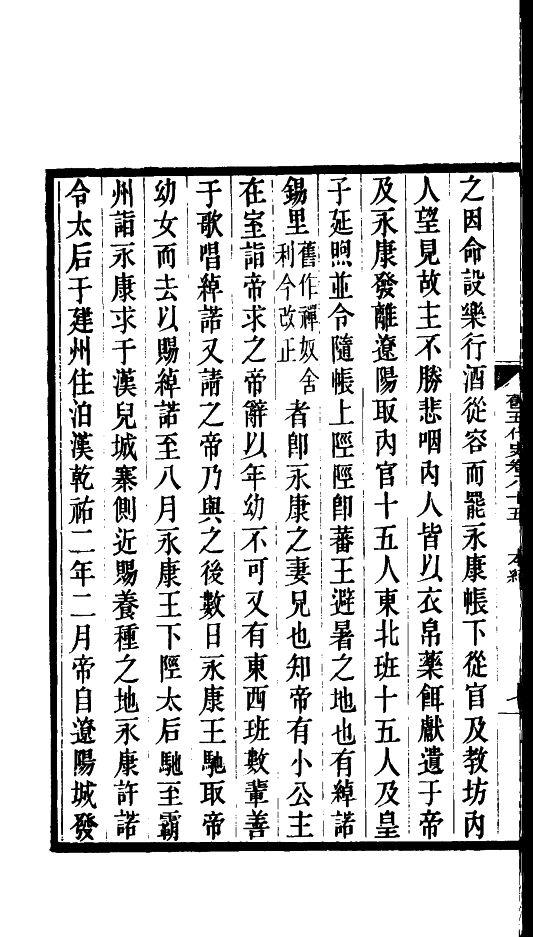 之因命設樂行酒從容而罷永康帳下從官及教坊內
人望見故主不勝悲咽內人皆以衣帛藥餌獻遺于帝
及永康發離遼陽取內官十五人東北班十五人及皇
子延煦並令隨帳上陘陘卽蕃王避暑之地也有綽諾
錫里舊作禪奴舍利今改正者卽永康之妻兄也知帝有小公主
在室詣帝求之帝辭以年幼不可又有東西班數輩善
于歌唱綽諾又請之帝乃與之後數日永康王馳取帝
幼女而去以賜綽諾至八月永康王下陘太后馳至霸
州詣永康求于漢兒城寨側近賜養種之地永康許諾
令太后于建州住泊漢乾祐二年二月帝自遼陽城發
舊五代史卷八十五 本紀